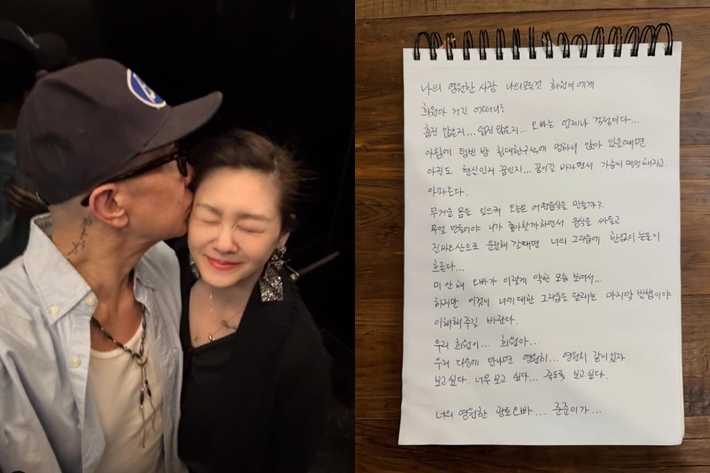 나의 영원한 사랑 나의모든것 희원이에게
희원아 거긴 어떠니?
춥진 않은지... 덥진 않은지... 오빠는 언제나 걱정이다...
아침에 텅빈 방 침대한구석에 멍하니 앉아 있을때면
아직도 현실인지 꿈인지... 꿈이길 바라면서 가슴이 먹먹해지고
아파온다.
무거운 몸을 일으켜 오늘은 어떤음식을 만들까?
무얼 만들어야 니가 좋아할까하면서 음식을 싸들고
진바오산으로 운전해 갈때면 너의 그리움에 한없이 눈물이
흐른다...
미안해 오빠가 이렇게 약한 모습 보여서...
하지만 이것이 너에 대한 그리움을 달래는 마지막 방법이야
이해해주길 바란다.
우리 희원이... 희원아...
우리 다음에 만나면 영원히... 영원히 같이있자.
보고싶다. 너무 보고 싶다... 죽도록 보고싶다.
너의 영원한 광토오빠... 준준이가...